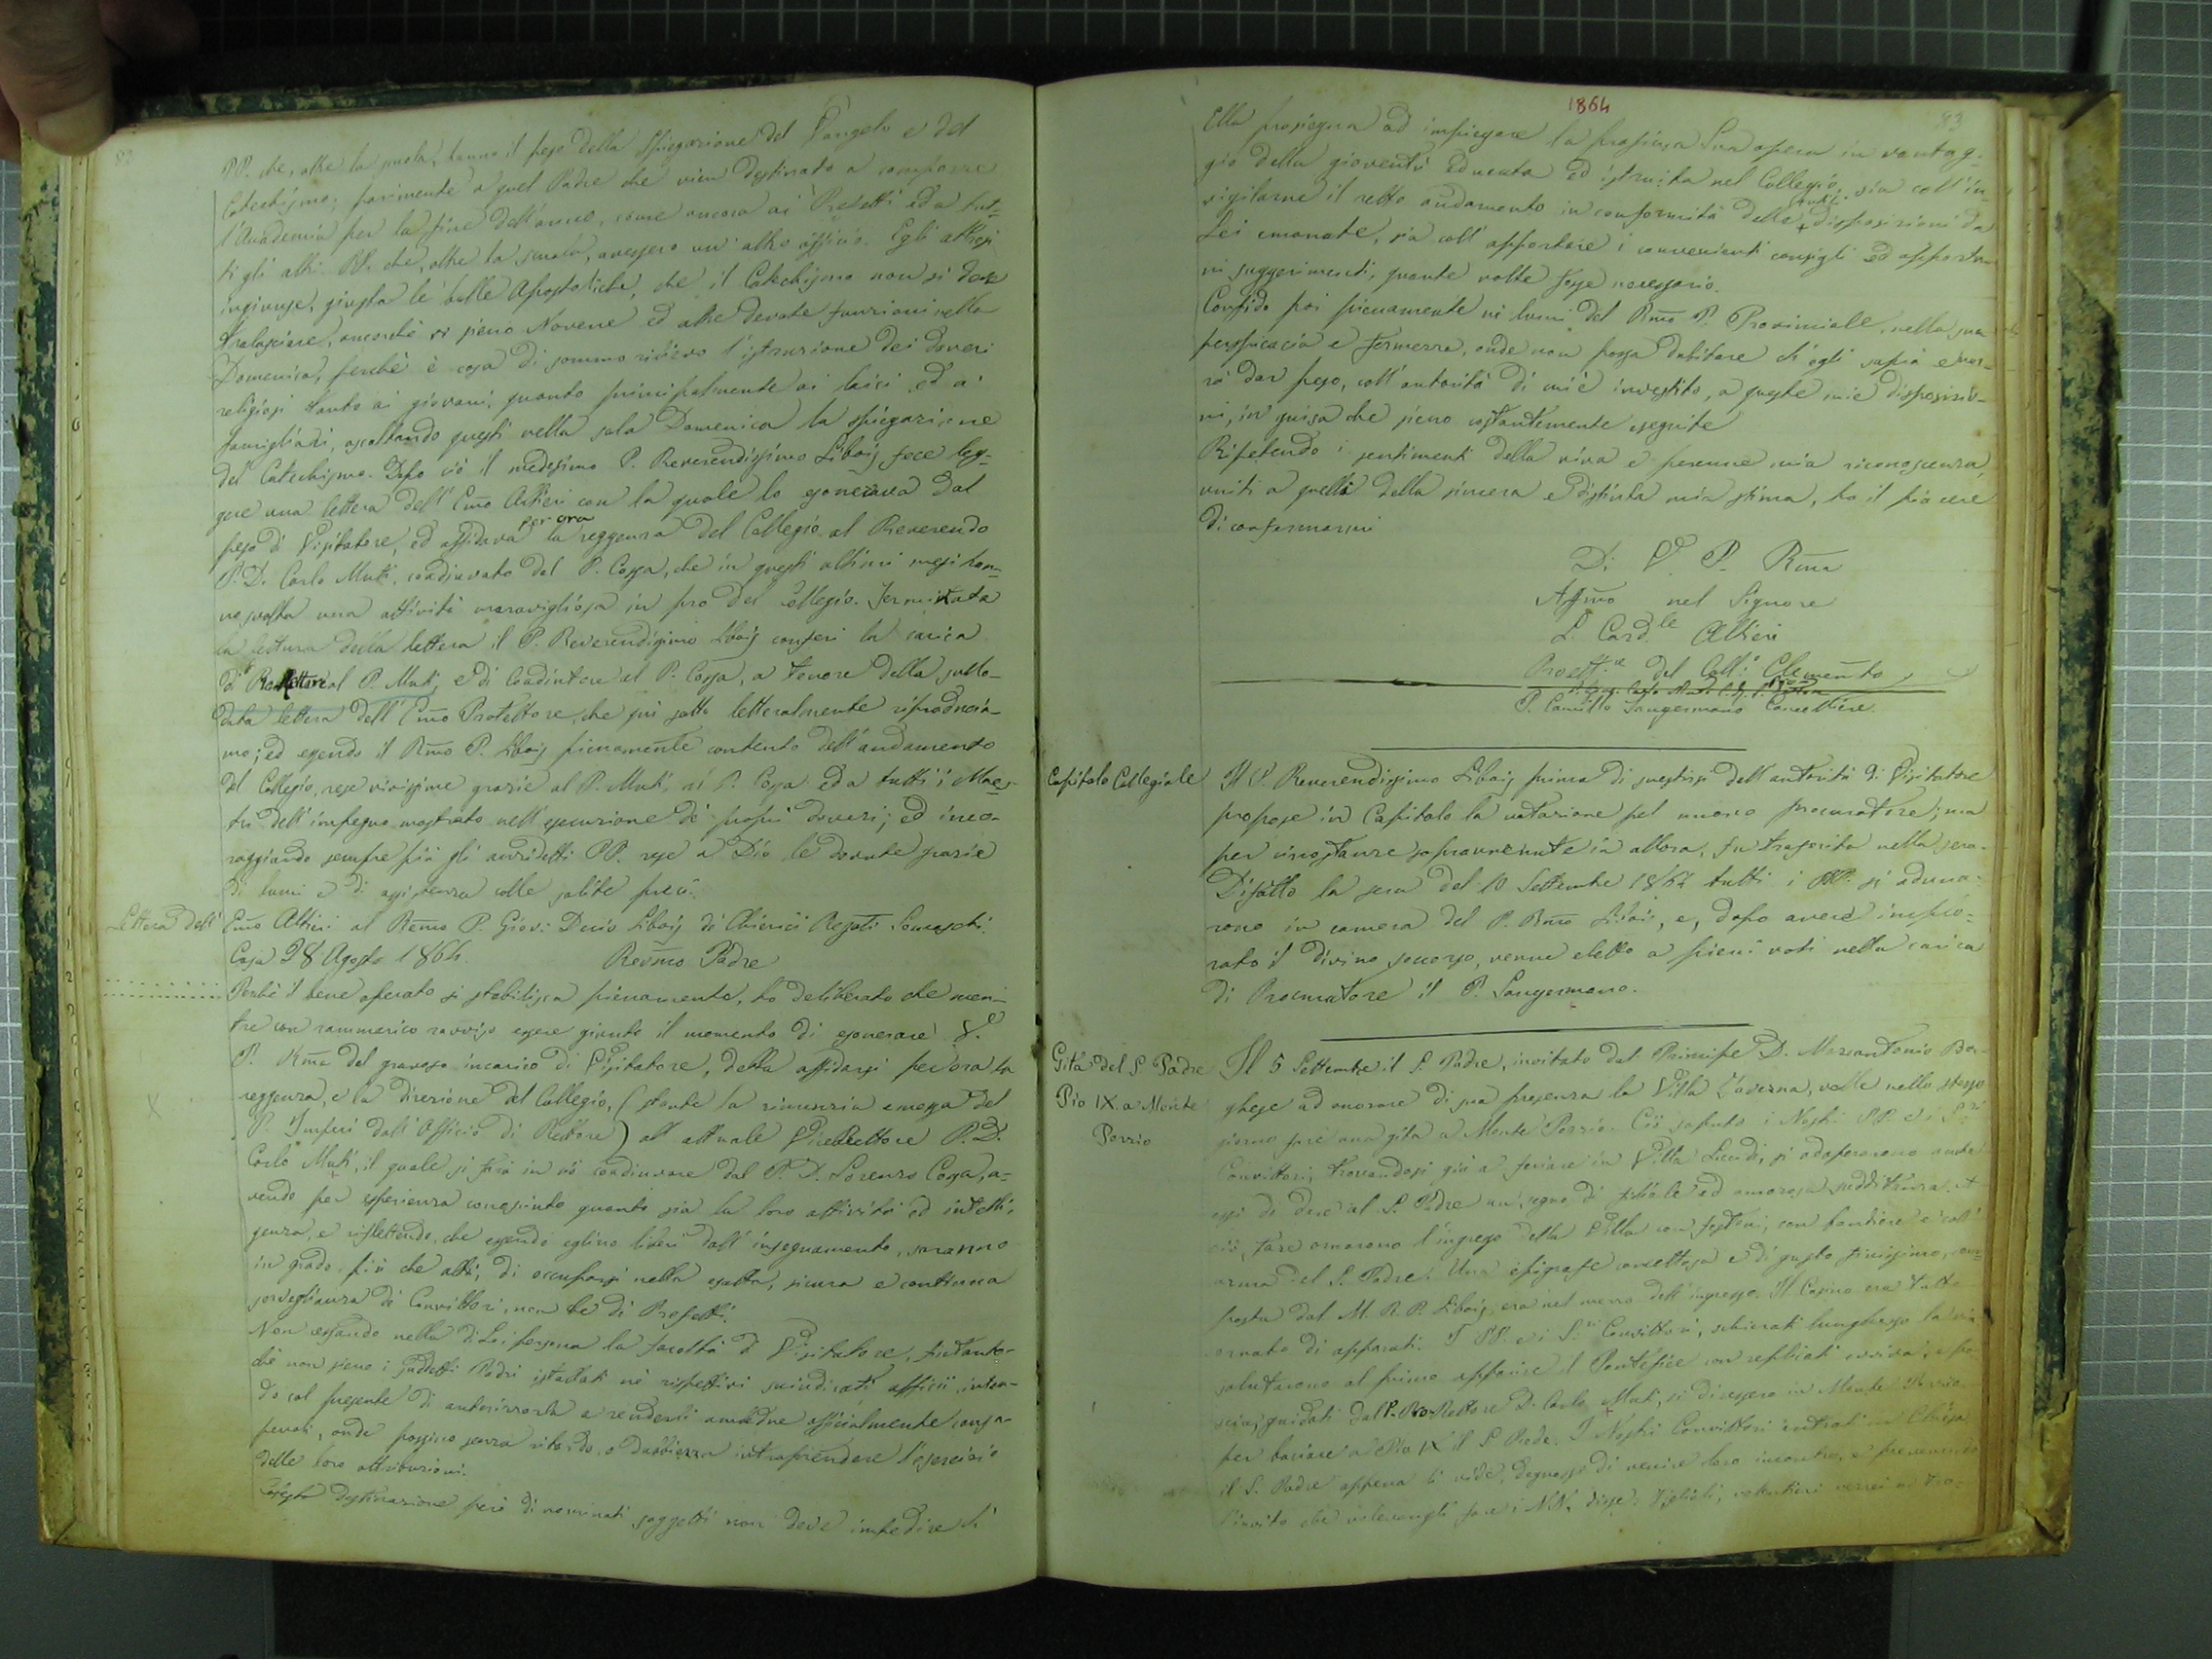 82
PP. che, oltre la scuola, hanno il peso della Spiegazione del Vangelo e del
Catechismo; parimente a quel Padre che vien destinato a comporre
l'Accademia per la fine dell'anno, come ancora ai Prefetti ed a tut-
ti gli altri PP. che, oltre la scuola, avessero un'altro officio. Egli altresì
ingiunse, giusta le bolle Apostoliche, che il Catechismo non si deve
tralasciare, ancorchè vi sieno Novene ed altre devote funzioni nella
Domenica, perchè è cosa di sommo rilievo l'istruzione dei doveri
religiosi tanto ai giovani, quanto principalmente ai laici ed ai
famigliari, ascoltando questi nella sola Domenica la spiegazione
del Catechismo. Dopo ciò il medesimo P. Reverendissimo Libois fece leg-
gere una lettera dell'Emo Altieri con la quale lo esonerava dal
peso di Visitatore, ed affidava per ora la reggenza del Collegio al Reverendo
P. D. Carlo Muti, coadiuvato dal P. Cossa, che in questi ultimi mesi han-
no svolta una attività maravigliosa in pro del Collegio. Terminata
la lettura della lettera il P. Reverendissimo Libois conferì la carica
di Rettore al P. Muti, e di Coadiutore al P. Cossa, a tenore della sullo-
data lettera dell'Emo Protettore, che qui sotto letteralmente riproducia-
mo; ed essendo il Rmo P. Libois pienamente contento dell'andamento
del Collegio, rese vivissime grazie al P. Muti, al P. Cossa ed a tutti i Maes-
tri dell'impegno mostrato nell'esecuzione de' propri doveri; ed inco-
raggiando sempre più gli anzidetti PP. rese a Dio le dovute grazie
di lumi e di assistenza colle solite preci.
Lettera dell' Emo Altieri al Remo P. Giov: Decio Libois de' Chierici Regolti Somaschi.
Casa 28 Agosto 1864. Revmo Padre
Perchè il bene operato si stabilisca pienamente, ho deliberato che men-
tre con rammarico ravviso essere giunto il momento di esonerare V.
P. Rma del gravoso incarico di Visitatore, debba affidarsi per ora la
reggenza, e la direzione del Collegio, (stante la rinunzia emessa del
P. Imperi dall'Officio di Rettore) all'attuale ViceRettore P. D.
Carlo Muti, il quale si farà in ciò coadiuvare dal P. D. Lorenzo Cossa, a-
vendo per esperienza conosciuto quanta sia la loro attività ed intelli-
genza, e riflettendo, che essendo eglino liberi dall'insegnamento, saranno
in grado, più che altri, di occuparsi nella esatta, sicura e continua
sorveglianza de' Convittori, non che di Prefetti.
Non cessando nella di Lei persona la facoltà di Visitatore, fintanto-
chè non sieno i suddetti Padri istallati ne' rispettivi suindicati officii, inten-
do col presente di autorizzarla a renderli amendue officialmente consa-
pevoli, onde possino senza ritardo, o dubbiezza intraprendere l'esercizio
delle loro attribuzioni.
Cotesta destinazione però di nominati soggetti non deve impedire ch'
1864
83
Ella prosiegua ad impiegare la proficua Sua opera in vantag-
gio della gioventù educata ed istruita nel Collegio, sia coll'in-
vigilarne il retto andamento in conformità delle + utili disposizioni da
Lei emanate, sia coll'apportare i convenienti consigli ed opportu-
ni suggerimenti, quante volte fosse necessario.
Confido poi pienamente ne' lumi del Rmo P. Provinciale, nella sua
perspicacia e fermezza, onde non possa dubitare ch'egli saprà e vor-
rà dar peso, coll'autorità di cui è investito, a queste mie disposizio-
ni, in guisa che sieno costantemente eseguite
Ripetendo i sentimenti della viva e perenne mia riconoscenza,
uniti a quelli della sincera e distinta mia stima, ho il piacere
di confermarmi
Di V. P. Rma
Affmo nel Signore
L. Card.le Altieri
Prott.re del Coll.o Clementino
P. Camillo Sangermano Cancelliere.
Capitolo Collegiale
Il P. Reverendissimo Libois prima di svestirsi dell'autorità di Visitatore
propose in Capitolo la votazione pel nuovo procuratore; ma
per circostanze sopravvenute in allora, fu trasferita nella sera.
Difatto la sera del 10 Settembre 1864 tutti i PP. si aduna-
rono in camera del P. Rmo Libois, e, dopo avere implo-
rato il divino soccorso, venne eletto a pieni voti nella carica
di Procuratore il P. Sangermano.
Gita del S. Padre
Pio IX. a Monte
Porzio
Il 5 Settembre il S. Padre, invitato dal Principe D. Marcantonio Bor-
ghese ad onorare di sua presenza la Villa Taverna, volle nello stesso
giorno fare una gita a Monte Porzio. Ciò saputo i Nostri PP. e i S.ri
Convittori, trovandosi già a feriare in Villa Lucidi, si adoperarono anch'
essi di dare al S. Padre un segno di filiale ed amorosa sudditanza. A
ciò fare ornarono l'ingresso della Villa con festoni, con bandiere e coll'
arma del S. Padre. Una epigrafe concettosa e di gusto finissimo, com-
posta dal M. R. P. Libois, era nel mezzo dell'ingresso. Il Casino era tutto
ornato di apparati. I PP. e i S.ri Convittori, schierati lunghesso la via
salutarono al primo apparire il Pontefice con replicati evviva, e po-
scia, guidati dal P. Pro-Rettore D. Carlo Muti, si diressero in Monte Porzio
per baciare a Pio IX il S. Piede. I Nostri Convittori entrati in Chiesa
il S. Padre appena li vide, degnossi di venire loro incontro, e prevenendo
l'invito che volevangli fare i NN. disse: Figliuoli, volentieri verrei a tro-